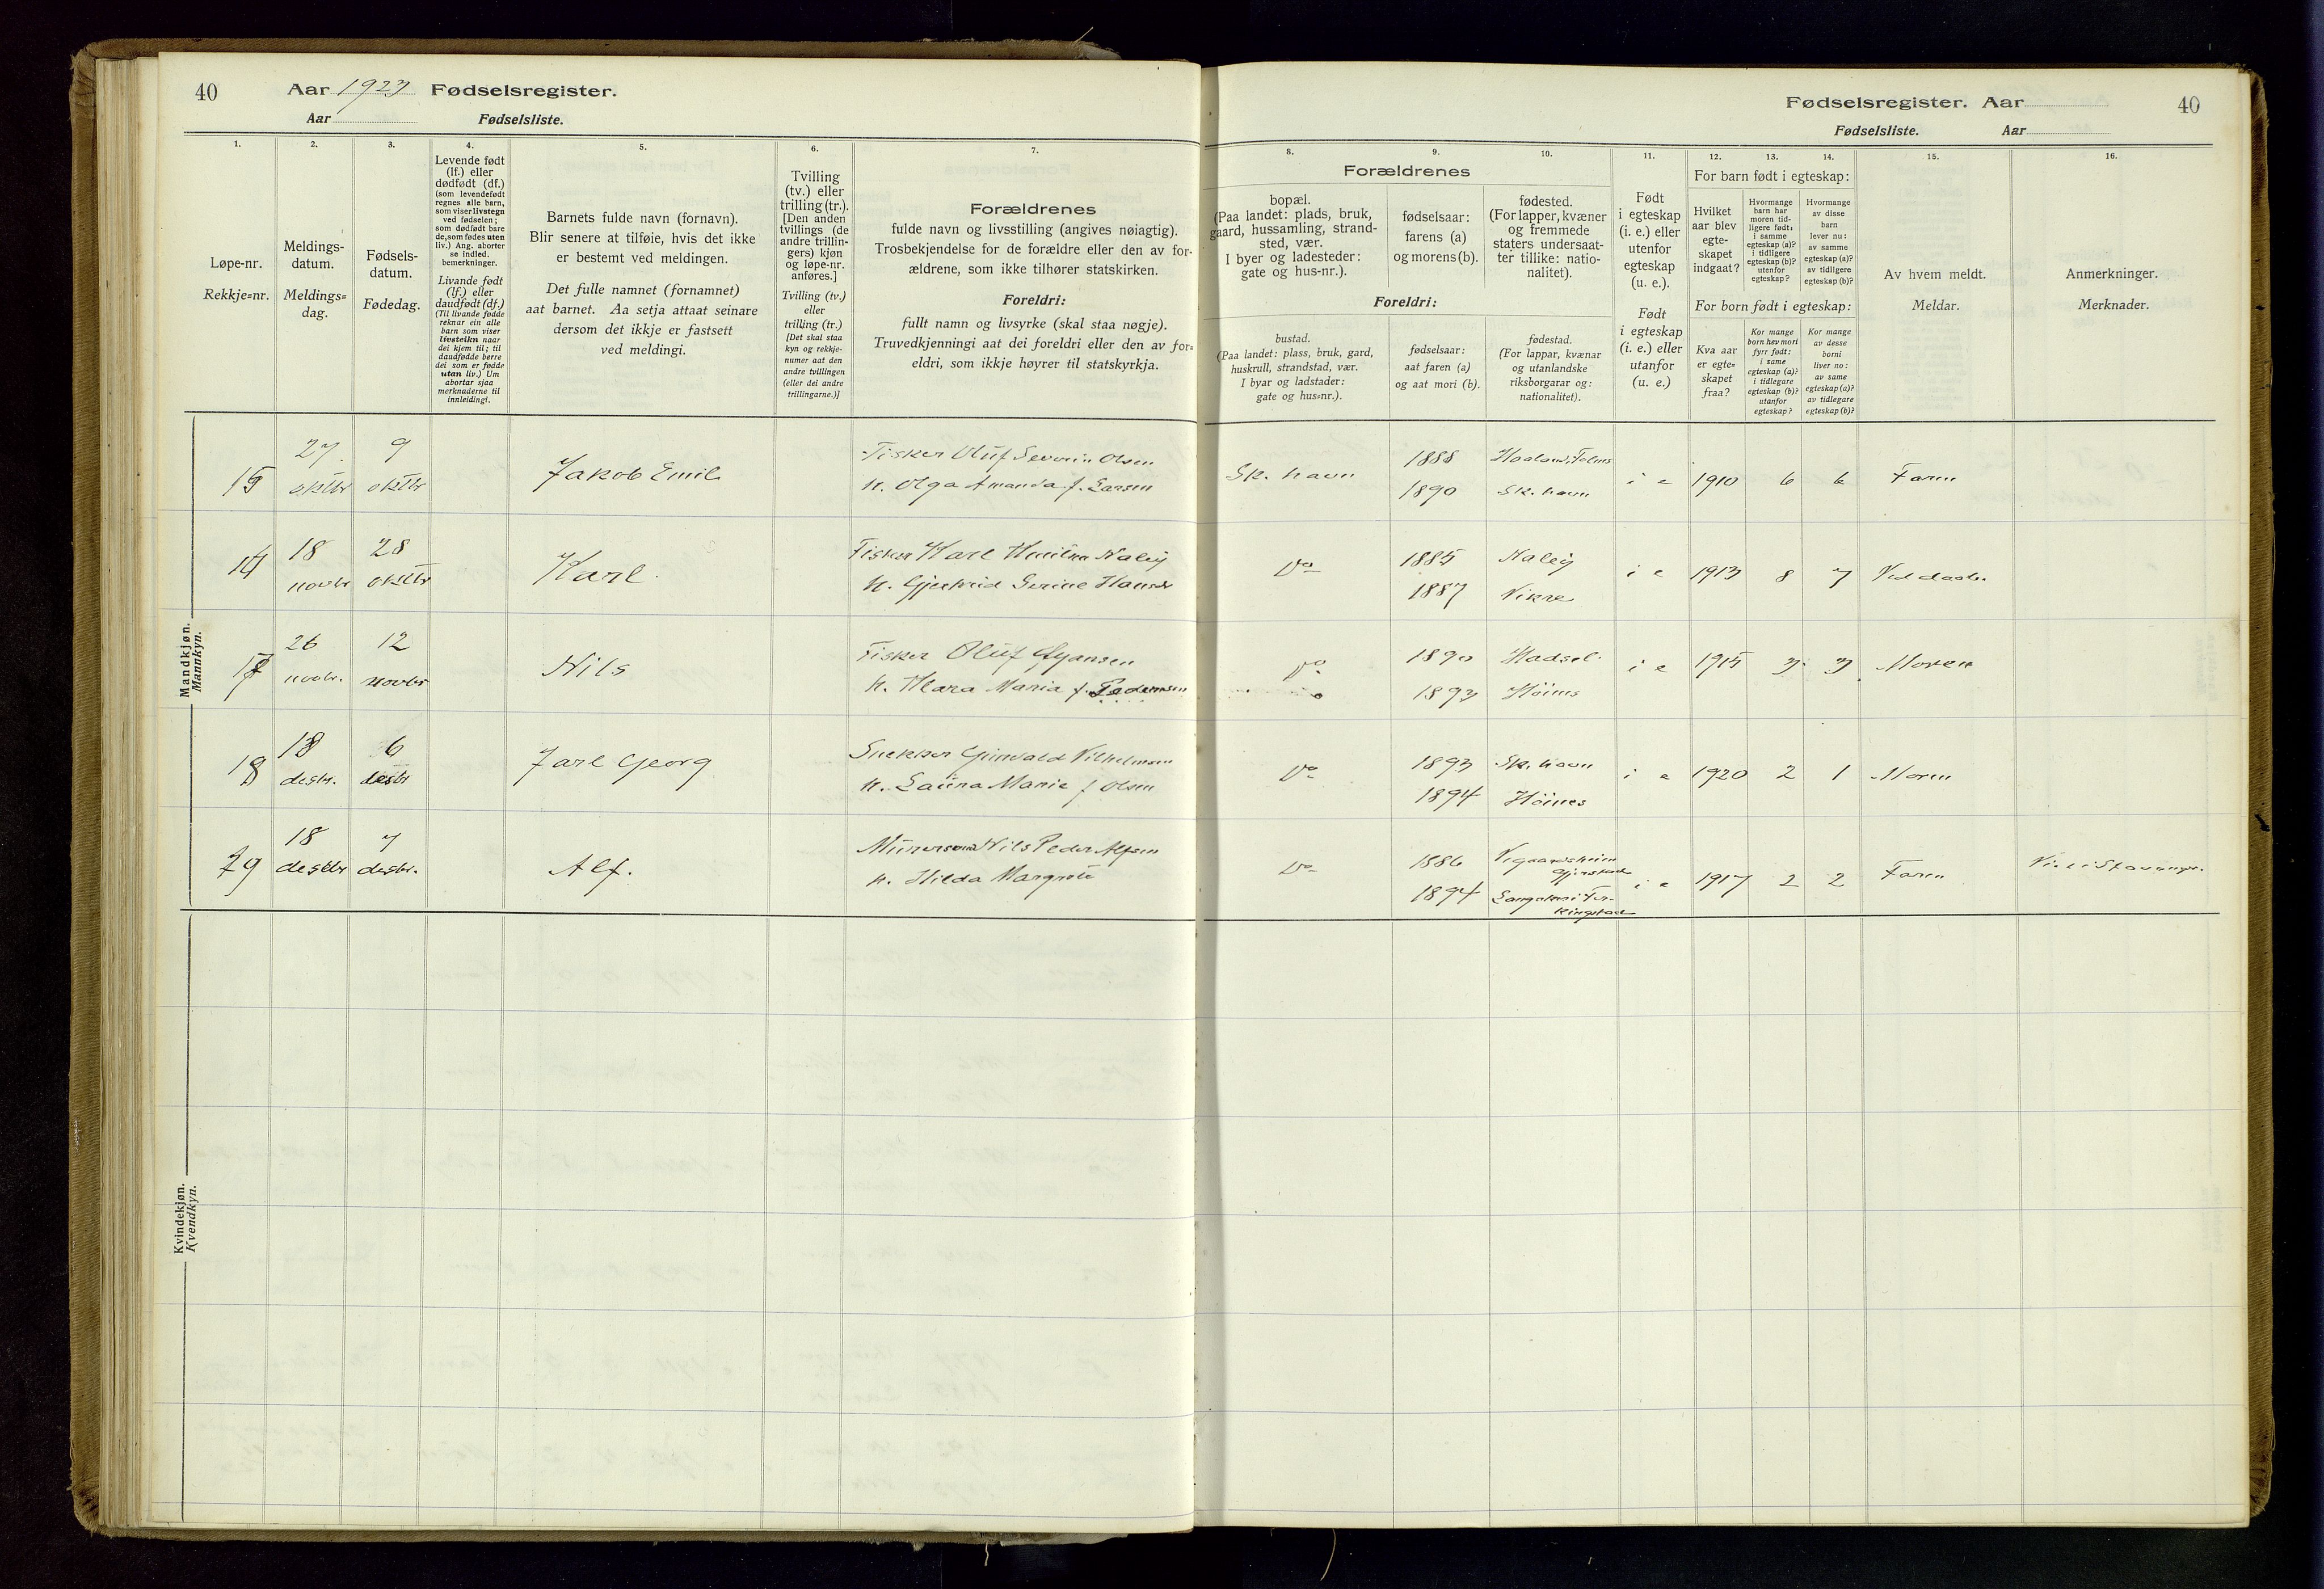 40
Aar 1923 Fødselsregister.
Aar Fødselsliste.
Fødselsregister. Aar
40
Fødselsliste. Aar
1.
2.
3.
4.
5.
6.
7.
8.
9.
10.
11.
12.
13.
14.
15.
16.
Løpe-nr.
Rekkje=nr.
Meldings-
datum.
Meldings=
dag.
Fødsels-
datum.
Fødedag.
Levende født
(lf.) eller
dødfødt (df.)
(som levendefødt
regnes alle barn,
som viser livstegn
ved fødselen;
som dødfødt bare
de, som fødes uten
liv.) Ang. aborter
se indled.
bemerkninger.
Livande født
(lf.) eller
daudfødt (df.)
(Til livande fødde
reknar ein alle
barn som viser
livsteikn naar
dei kjem til; til
daudfødde berre
dei som er fødde
utan liv.) Um
abortar sjaa
merknaderne til
innleidingi.
Barnets fulde navn (fornavn).
Blir senere at tilføie, hvis det ikke
er bestemt ved meldingen.
Det fulle namnet (fornamnet)
aat barnet. Aa setja attaat seinare
dersom det ikkje er fastsett
ved meldingi.
Tvilling
(tv.) eller
trilling (tr.).
[Den anden
tvillings (de
andre trillin-
gers) kjøn
og løpe-nr.
anføres.]
Tvilling (tv.)
eller
trilling (tr.)
[Det skal staa
kyn og rekkje-
numer aat den
andre tvillingen
(eller dei andre
trillingarne.)]
Forældrenes
fulde navn og livsstilling (angives nøiagtig).
Trosbekjendelse for de forældre eller den av for-
ældrene, som ikke tilhører statskirken.
Foreldri:
fullt namn og livsyrke (skal staa nøgje).
Truvedkjenningi aat dei foreldri eller den av for=
eldri, som ikkje høyrer til statskyrkja.
Forældrenes
bopæl.
(Paa landet: plads, bruk,
gaard, hussamling, strand-
sted, vær.
I byer og ladesteder:
gate og hus-nr.).
fødselsaar:
farens (a)
og morens (b).
fødested.
(For lapper, kvæner
og fremmede
staters undersaat-
ter tillike: natio-
nalitet).
Foreldri:
bustad.
(Paa landet: plass, bruk, gard,
huskrull, strandstad, vær.
I byar og ladstader:
gate og hus=nr.).
fødselsaar:
aat faren (a)
og aat mori (b).
fødestad.
(For lappar, kvænar
og utanlandske
riksborgarar og:
nationalitet).
Født
i egteskap
(i. e.) eller
utenfor
egteskap
(u. e.).
Født
i egteskap
(i. e.) eller
utanfor
(u. e.)
For barn født i egteskap:
Hvilket
aar blev
egte-
skapet
indgaat?
Hvormange
barn har
moren tid-
ligere født:
i samme
egteskap (a)?
i tidligere
egteskap (b)?
utenfor
egteskap?
Hvormange
av disse
barn
lever nu:
av samme
egteskap (a)?
av tidligere
egteskap (b)?
For born født i egteskap:
Kva aar
er egte-
skapet
fraa?
Kor mange
born hev mori
fyrr født:
i same
egteskap (a)?
i tidlegare
egteskap (b)?
utanfor
egteskap?
Kor mange
av desse
borni
liver no:
av same
egteskap (a)?
av tidlegare
egteskap (b)?
Av hvem meldt.
Meldar.
Anmerkninger.
Merknader.
Mandkjøn.
Mannkyn.
15 27 oktbr 9 oktbr Jakob Emil
Fisker Oluf Severin Olsen
h. Olga Amanda f. Larsen
Sk. havn 1888
1890 Sk. havn
i e 1910 6 6 Faren
18 novbr 28 oktbr Karl
Fisker Karl
h. Gjertrud Serine
Do 1885
1887 Vikre
i e 1913 8 7
17 26 novbr. 12 novbr Nils
Fisker Oluf
h. Klara Maria f. Pedersen
Do 1890 Hadsel
1893
i e 1915 3 3 Moren
18 desbr. 6 desbr Jarl Georg
Snekker Grinvald Vilhelmsen
h. Laura Marie f Olsen
Do 1893 Sk. havn
1894
i e 1920 2 1 Moren
19 18 desbr 7 desbr. Alf.
Nils Peder Alfsen
h. Hilda Margrete
Do 1886
1894
i e 1917 2 2 Faren
Kvindekjøn.
Kvendkyn.